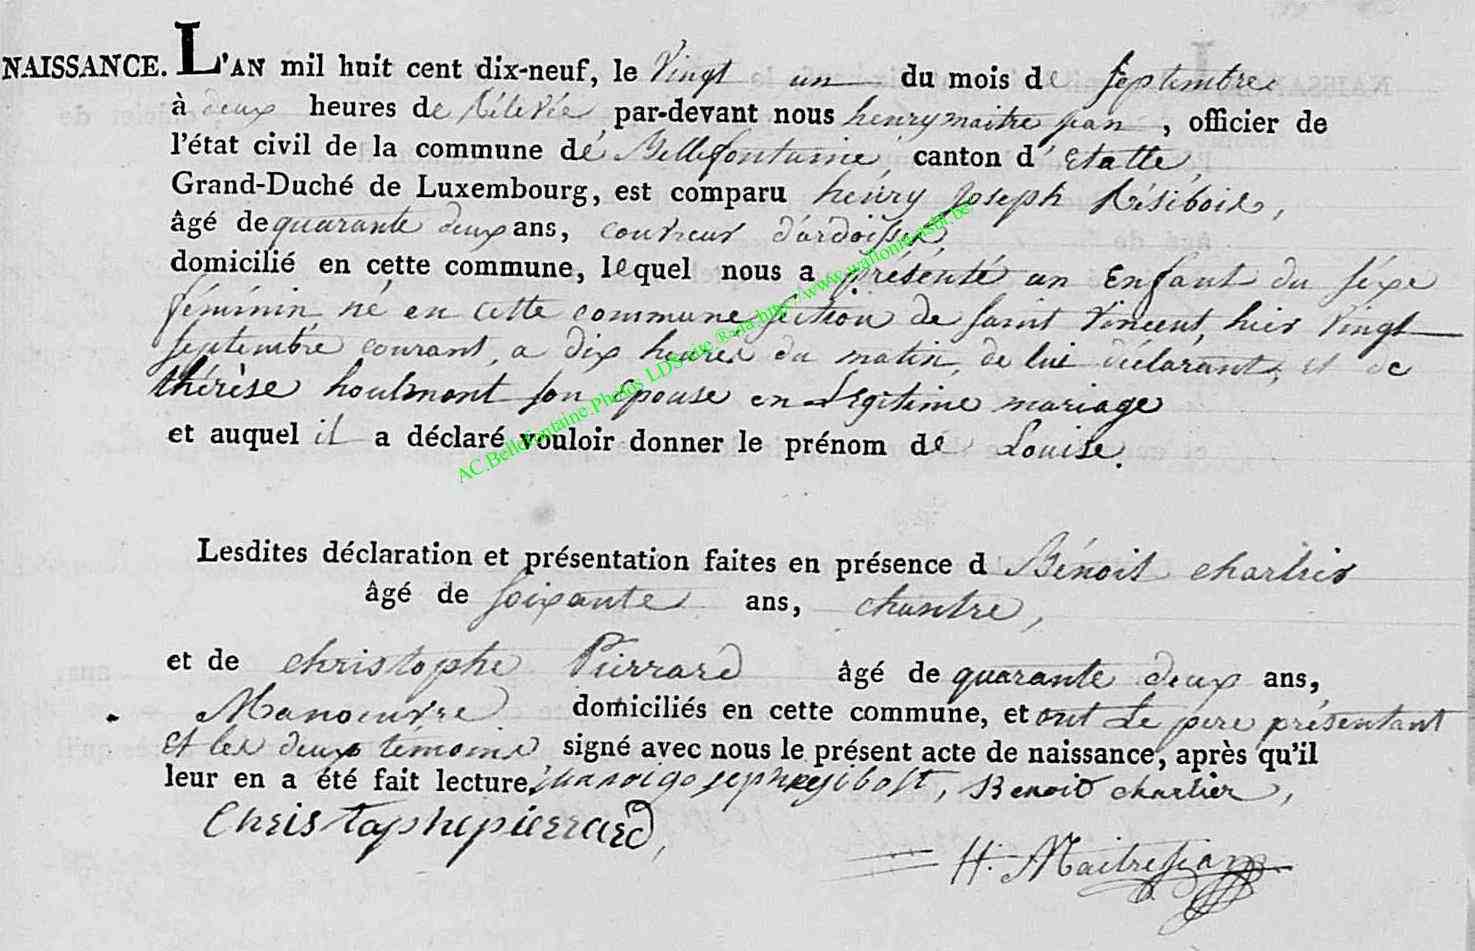 NAISSANCE. L'AN mil huit cent dix-neuf, le Vingt un du mois de septembre
à deux heures de rélévée, par-devant nous henry maitre jean, officier de
l'état civil de la commune dé Bellefontaine, canton d'Etalle,
Grand-Duché de Luxembourg, est comparu henry joseph Résibois,
âgé de quarante deux ans, couvreur d'ardoises,
domicilié en cette commune, lequel nous a présenté un Enfant du séxe
féminin né en cette commune section de saint Vincent, hier Vingt
septembre courant, a dix heures du matin, de lui déclarant, et de
thérèse houlmont son épouse en Légitime mariage
et auquel il a déclaré vouloir donner le prénom dé Louise.
AC.Bellefontaine.Photos LDS-site
Lesdites déclaration et présentation faites en présence d Bénoit charlier
âgé de soixante ans, chantre,
et de christophe Pierrard âgé de quarante deux ans,
Manoeuvre domiciliés en cette commune, et ont Le père présentant
et les deux témoins signé avec nous le présent acte de naissance, après qu'il
leur en a été fait lecture, Benoit charlier,
Christophe pierrard,
H. Maitrejean